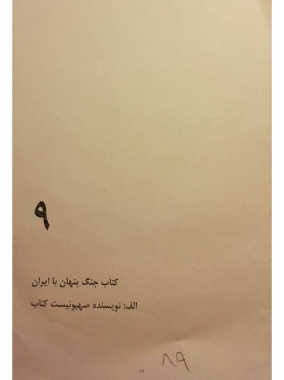 ۹
کتاب جنگ پنهان با ایران
الف: نویسنده صهیونیست کتاب
۸۹